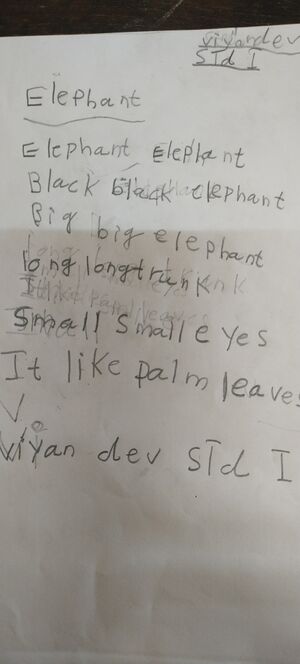 viyandev
STd I
Elephant
Elephant Elephant
Black black elephant
Big big elephant
long long trunk
Small Small eyes
It like palm leaves
V
viyan dev STd I